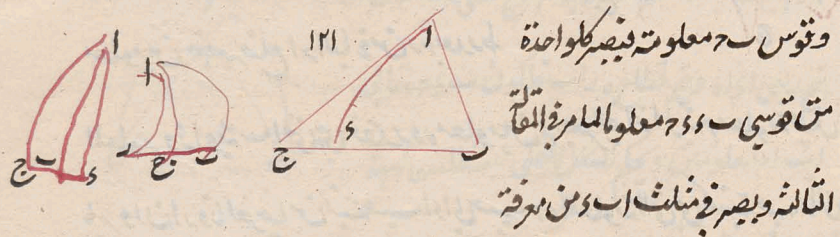 وقوس ب ح معلومة فيصير كل واحدة
من قوسي ب ء ء ح معلوما لما مر في المقالة
الثالثة ويصير في مثلث ا ب ء من معرفة
١٢١
ا
ج
ب
ء
ا
ر
ج
ب
ا
ء
ج
ب